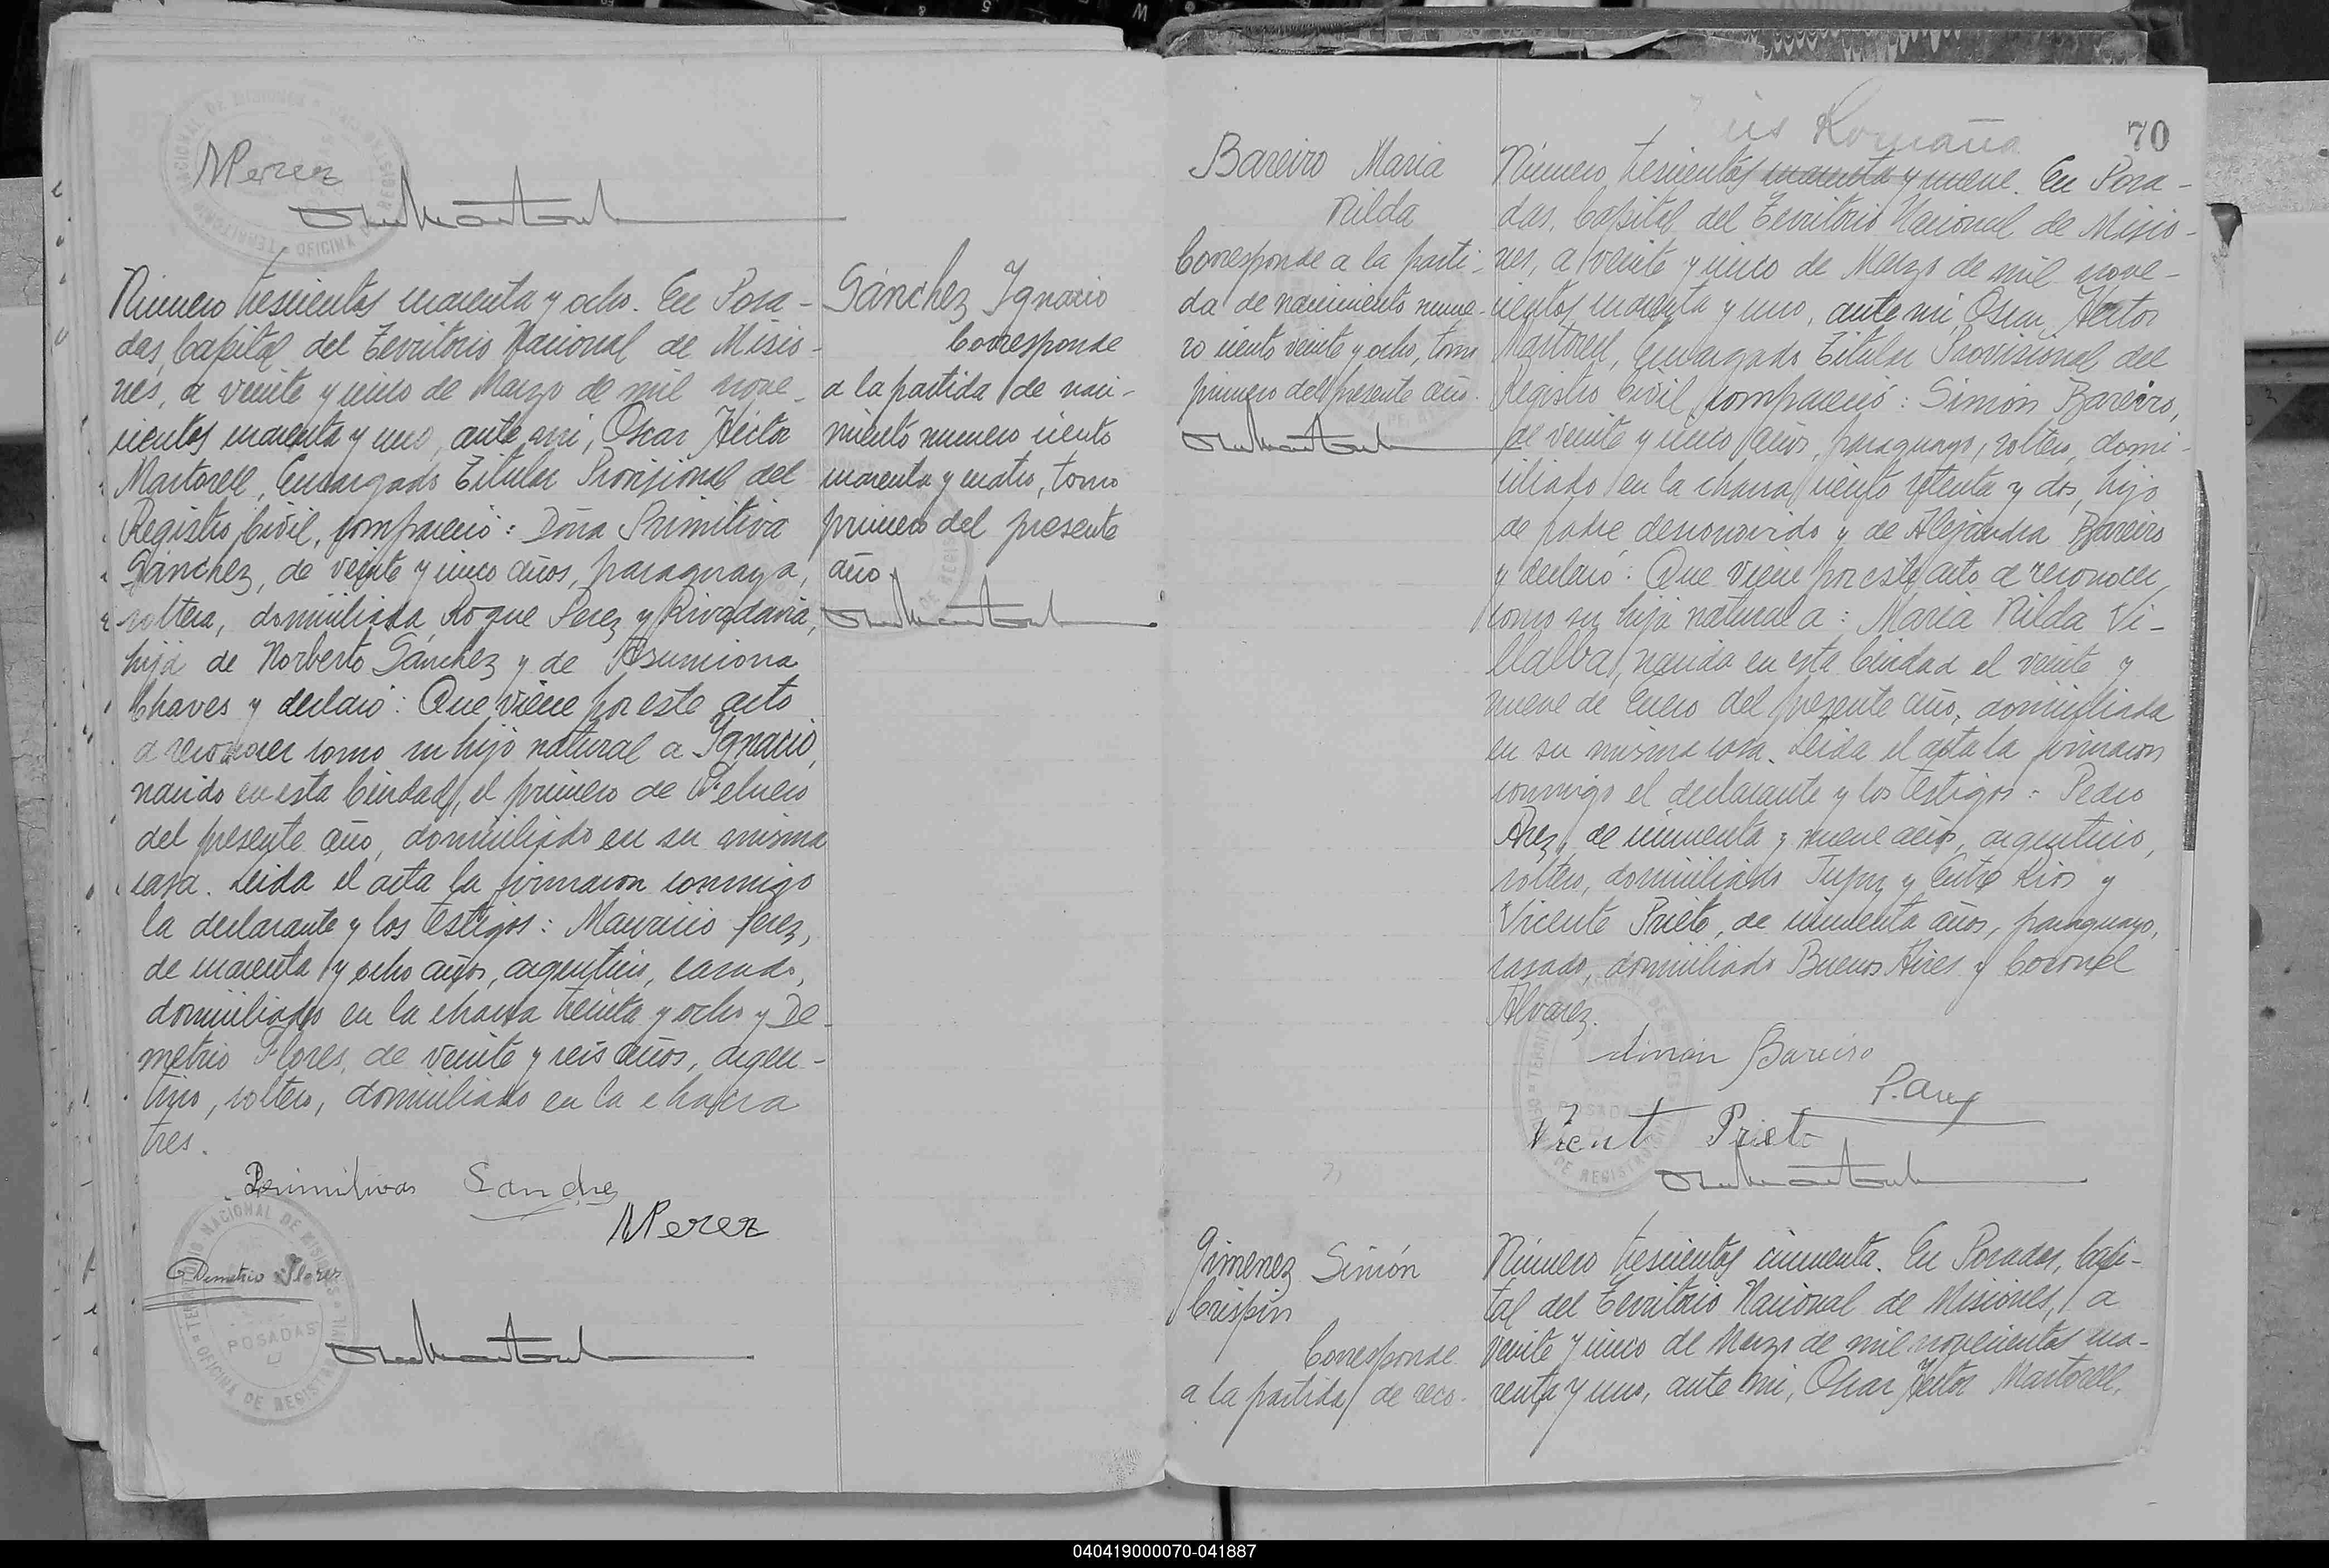 MPerez
Número trescientos cuarenta y ocho. En Posa-
das, Capital del Territorio Nacional de Misio-
nes, a veinte y cinco de Marzo de mil nove-
cientos cuarenta y uno, ante mi, Oscar Héctor
Martorell, Encargado Titular Provisional del
Registro Civil, compareció: Doña Primitiva
Sánchez, de veinte y cinco años, paraguaya,
soltera, domiciliada Roque Perez y Rivadavia,
hija de Norberto Sánchez y de Asunciona
Chaves y declaró: Que viene por este acto
a reconocer como su hijo natural a Ygnacio,
nacido en esta Ciudad, el primero de Febrero
del presente año, domiciliado en su misma
casa. Leida el acta la firmaron conmigo
la declarante y los testigos: Mauricio Perez,
de cuarenta y ocho años, argentino, casado,
domiciliado en la chacra treinta y ocho y De-
metrio Flores, de veinte y seis años, argen-
tino, soltero, domiciliado en la chacra
tres.
Primitiva Sanchez
MPerez
Demetrio Flores
TERRITORIO NACIONAL DE MISIONES
POSADAS
OFICINA DE REGISTRO CIVIL
Sánchez Ygnacio
Corresponde
a la partida de naci-
miento numero ciento
cuarenta y cuatro, tomo
primero del presente
año.
70
Bareiro Maria
Nilda
Corresponde a la parti-
da de nacimiento nume-
ro ciento veinte y ocho, tomo
primero del presente año.
Número trescientos cuarenta y nueve. En Posa-
das, Capital del Territorio Nacional de Misio-
nes, a veinte y cinco de Marzo de mil nove-
cientos cuarenta y uno, ante mi, Oscar Héctor
Martorell, Encargado Titular Provisional del
Registro Civil, compareció: Simón Bareiro,
de veinte y cinco años, paraguayo, soltero, domi-
ciliado en la chacra ciento setenta y dos, hijo
de padre desconocido y de Alejandra Bareiro
y declaró: Que viene por este acto a reconocer
como su hija natural a: Maria Nilda Vi-
llalba, nacida en esta Ciudad el veinte y
nueve de Enero del presente año, domiciliada
en su misma casa. Leida el acta la firmaron
conmigo el declarante y los testigos: Pedro
Arez, de cincuenta y nueve años, argentino,
soltero, domiciliado Jujuy y Entre Rios y
Vicente Prieto, de cincuenta años, paraguayo,
casado, domiciliado Buenos Aires y Coronel
Alvarez.
Simón Bareiro
P. Arez
Vicent Prieto
Gimenez Simón
Crispín
Corresponde
a la partida de reco-
Número trescientos cincuenta. En Posadas, Capi-
tal del Territorio Nacional de Misiones, a
veinte y cinco de Marzo de mil novecientos cua-
renta y uno, ante mi, Oscar Héctor Martorell,
040419000070-041887